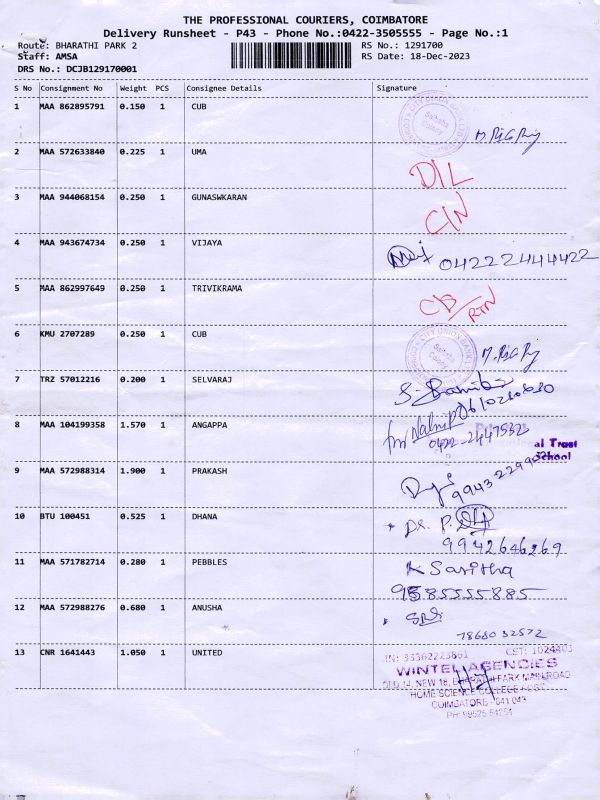 THE PROFESSIONAL COURIERS, COIMBATORE
Delivery Runsheet - P43 - Phone No.:0422-3505555 - Page No.:1
Route: BHARATHI PARK 2 RS No.: 1291700
Staff: AMSA RS Date: 18-Dec-2023
DRS No.: DCJB129170001
S No Consignment No Weight PCS Consignee Details Signature
1 MAA 862895791 0.150 1 CUB
2 MAA 572633840 0.225 1 UMA D/L
3 MAA 944068154 0.250 1 GUNASWKARAN C/N
4 MAA 943674734 0.250 1 VIJAYA 04222444422
5 MAA 862997649 0.250 1 TRIVIKRAMA CB/RTN
6 KMU 2707289 0.250 1 CUB
7 TRZ 57012216 0.200 1 SELVARAJ
8 MAA 104199358 1.570 1 ANGAPPA 0422-2447532
al Trust
School
9 MAA 572988314 1.900 1 PRAKASH
10 BTU 100451 0.525 1 DHANA
9942646269
11 MAA 571782714 0.280 1 PEBBLES K Saritha
9585555885
12 MAA 572988276 0.680 1 ANUSHA
13 CNR 1641443 1.050 1 UNITED
WINTEL AGENCIES
OLD 14, NEW 18, BHARATHI PARK MAIN ROAD
HOME SCIENCE COLLEGE POST
COIMBATORE - 641 043